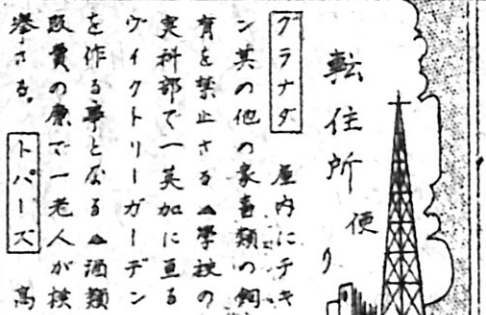 転住所便り
グラナダ 屋内にチキ
ン其の他の家畜類の飼
育を禁止さる▲學校の
実科部で一英加に亘る
ヴィクトリーガーデン
を作る事となる▲酒類
販賣の廉で一老人が検
挙さる。トパーズ 高